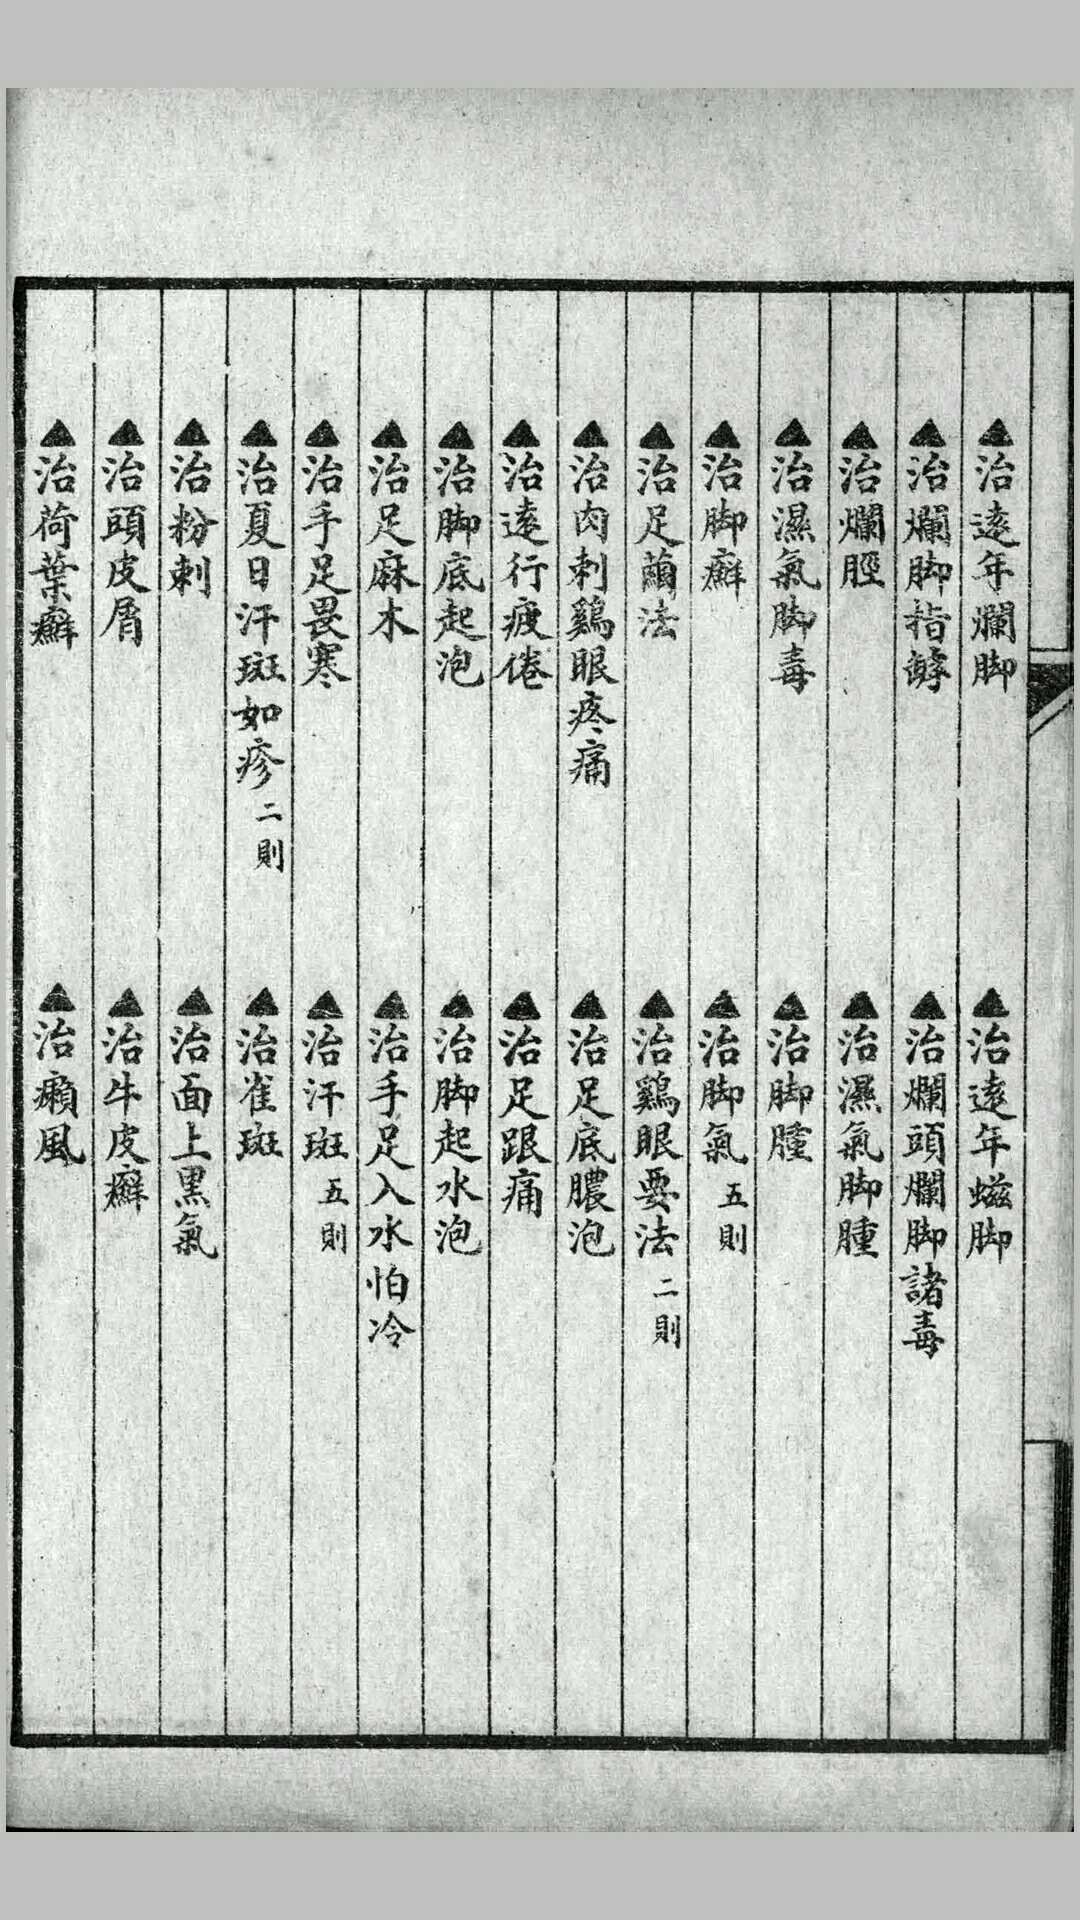 ▲治遠年爛脚 ▲治遠年蟮脚
▲治爛脚指孵 ▲治爛頭爛脚諸毒
▲治爛脛 ▲治濕氣脚腫
▲治濕氣脚毒 ▲治脚腫
▲治脚癬 ▲治脚氣 五則
▲治足繭法 ▲治鷄眼要法 二則
▲治肉刺鷄眼疼痛 ▲治足底膿泡
▲治遠行疲倦 ▲治足跟痛
▲治脚底起泡 ▲治脚起水泡
▲治足麻木 ▲治手足入水怕冷
▲治手足畏寒 ▲治汗斑 五則
▲治夏日汗斑如疹 二則 ▲治雀斑
▲治粉刺 ▲治面上黑氣
▲治頭皮屑 ▲治牛皮癬
▲治荷葉癬 ▲治癩風